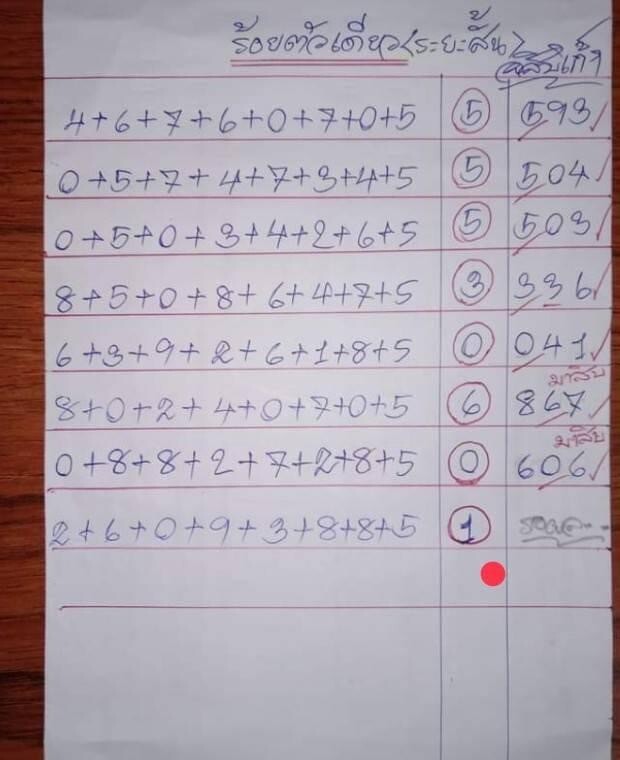 ร้อยตัวเดียวระยะสั้น
4+6+7+6+0+7+0+5 5 593
0+5+7+4+7+3+4+5 5 504
0+5+0+3+4+2+6+5 5 503
8+5+0+8+6+4+7+5 3 336
6+3+9+2+6+1+8+5 0 041
มาสิบ
8+0+2+4+0+7+0+5 6 867
มาสิบ
0+8+8+2+7+2+8+5 0 606
2+6+0+9+3+8+8+5 1 รอผล...